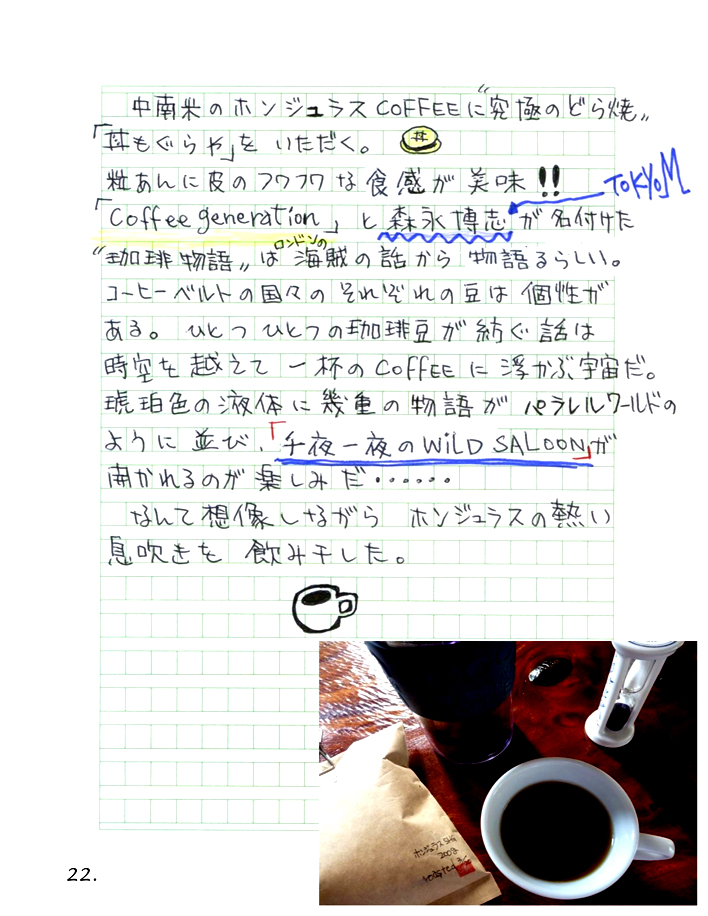 中南米のホンジュラスCOFFEEに“究極のどら焼”
「丼もぐらや」をいただく。
粒あんに皮のフワフワな食感が美味!!
TOKYO M
「Coffee generation」と森永博志が名付けた
“珈琲物語”はロンドンの海賊の話から物語るらしい。
コーヒーベルトの国々のそれぞれの豆は個性が
ある。ひとつひとつの珈琲豆が紡ぐ話は
時空を越えて一杯のCOFFEEに浮かぶ宇宙だ。
琥珀色の液体に幾重の物語がパラレルワールドの
ように並び、「千夜一夜のWiLD SALOON」が
開かれるのが楽しみだ・・・・・・
なんて想像しながらホンジュラスの熱い
息吹きを飲み干した。
ホンジュラス SHG
2009
roasted
22.